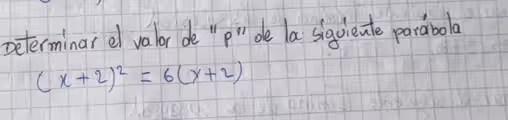 Determinar el valor de "p" de la siguiente parábola
(x+2)² = 6(x+2)